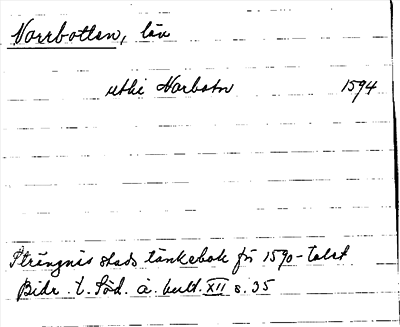 Norrbotten, län
uthi Norbotn 1594
Strängnäs stads tänkebok för 1590-talet
Bidr. t. Söd. ä. kult. XII s. 35